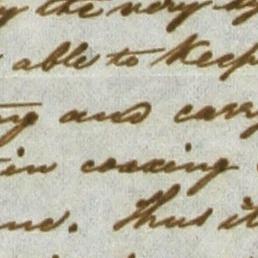 the very
able to keep
and carry
in coaxing
Thus it